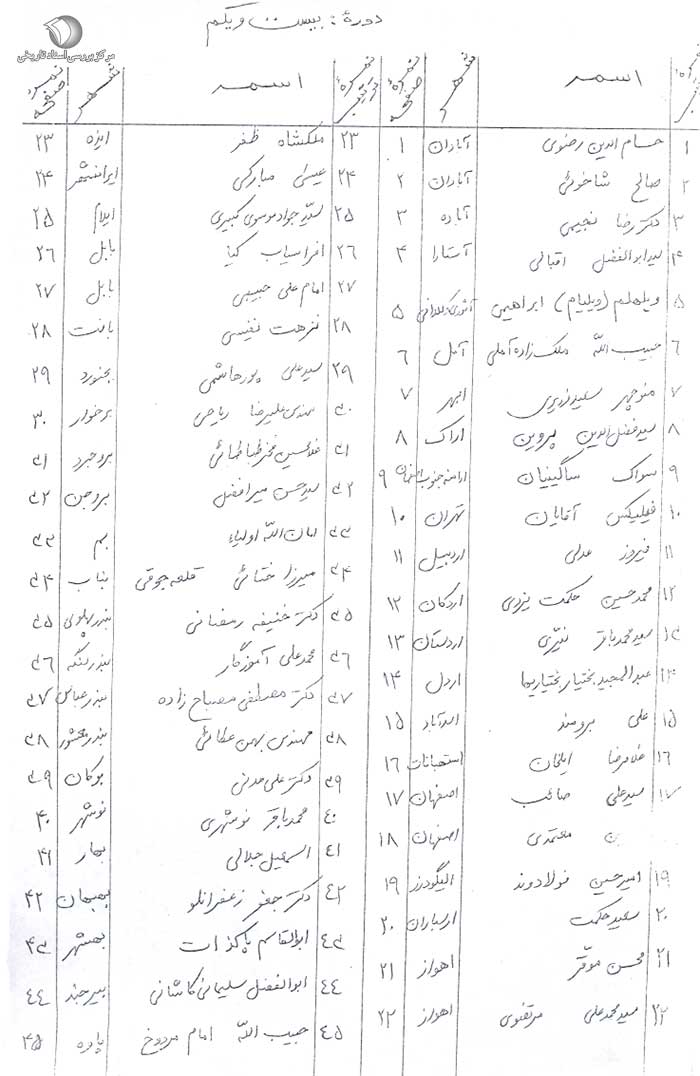 مرکز بررسی اسناد تاریخی
دورهٔ : بیست و یکم
نمرهٔ ترتیب اسم شهر نمرهٔ صفحه
۱ حسام الدین رضوی آبادان ۱
۲ صالح شاخوئی آبادان ۲
۳ دکتر رضا نجیمی آباده ۳
۴ سید ابوالفضل اقبالی آستارا ۴
۵ ویلهلم (ویلیام) ابراهیمی ۵
۶ حبیب الله ملک زاده آملی آمل ۶
۷ منوچهر سعید وزیری ابهر ۷
۸ سید فضل الدین پروین اراک ۸
۹ سواک ساگینیان ارامنه جنوب اصفهان ۹
۱۰ فیلیکس آقایان تهران ۱۰
۱۱ فیروز عدلی اردبیل ۱۱
۱۲ محمد حسین حکمت یزدی اردکان ۱۲
۱۳ سید محمد باقر نیّری اردستان ۱۳
۱۴ عبدالمجید بختیار بختیاریها اردل ۱۴
۱۵ علی برومند اسدآباد ۱۵
۱۶ غلامرضا ایلخان استهبانات ۱۶
۱۷ سید علی صائب اصفهان ۱۷
معتمدی اصفهان ۱۸
۱۹ امیر حسین فولادوند الیگودرز ۱۹
۲۰ سعید حکمت ارسباران ۲۰
۲۱ محسن موقر اهواز ۲۱
۲۲ سید محمد علی مرتضوی اهواز ۲۲
نمرهٔ ترتیب اسم شهر نمرهٔ صفحه
۲۳ ملکشاه ظفر ایذه ۲۳
۲۴ عیسی مبارکی ایرانشهر ۲۴
۲۵ سید جواد موسوی کبیری ایلام ۲۵
۲۶ افراسیاب کیا بابل ۲۶
۲۷ امام علی حبیبی بابل ۲۷
۲۸ نزهت نفیسی بافت ۲۸
۲۹ سید علی پورهاشمی بجنورد ۲۹
۳۰ مهندس علیرضا ریاحی برخوار ۳۰
۳۱ غلامحسین فخر طباطبائی بروجرد ۳۱
۳۲ سید حسن میرافضل بروجن ۳۲
۳۳ امان الله اولیاء بم ۳۳
۳۴ میرزا ختائی قلعه جوقی بناب ۳۴
۳۵ دکتر حنیفه رمضانی بندر پهلوی ۳۵
۳۶ محمد علی آموزگار بندر لنگه ۳۶
۳۷ دکتر مصطفی مصباح زاده بندر عباس ۳۷
۳۸ مهندس بهمن عطائی بندر معشور ۳۸
۳۹ دکتر علی مدنی بوکان ۳۹
۴۰ محمد باقر نوشهری نوشهر ۴۰
۴۱ اسمعیل جلالی بهار ۴۱
۴۲ دکتر جعفر زعفرانلو بهبهان ۴۲
۴۳ ابوالقاسم پاکذات بهشهر ۴۳
۴۴ ابوالفضل سلیمانی کاشانی بیرجند ۴۴
۴۵ حبیب الله امام مردوخ پاوه ۴۵